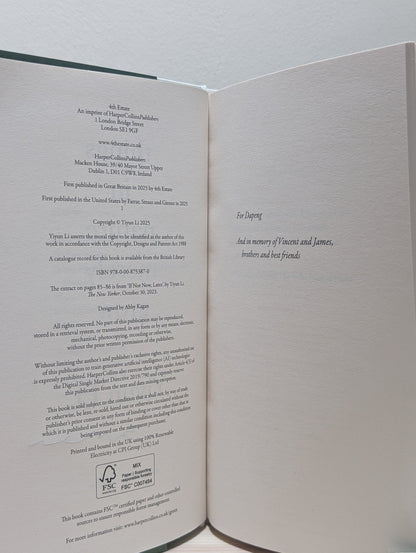 4th Estate
An imprint of HarperCollinsPublishers
1 London Bridge Street
London SE1 9GF
www.4thestate.co.uk
HarperCollinsPublishers
Macken House, 39/40 Mayor Street Upper
Dublin 1, D01 C9W8, Ireland
First published in Great Britain in 2025 by 4th Estate
First published in the United States by Farrar, Straus and Giroux in 2025
1
Copyright © Yiyun Li 2025
Yiyun Li asserts the moral right to be identified as the author of this
work in accordance with the Copyright, Designs and Patents Act 1988
A catalogue record for this book is available from the British Library
ISBN 978-0-00-875387-0
The extract on pages 85–86 is from 'If Not Now, Later,' by Yiyun Li
The New Yorker, October 30, 2023.
Designed by Abby Kagan
All rights reserved. No part of this publication may be reproduced,
stored in a retrieval system, or transmitted, in any form or by any means, electronic,
mechanical, photocopying, recording or otherwise,
without the prior written permission of the publishers.
Without limiting the author's and publisher's exclusive rights, any unauthorised use
of this publication to train generative artificial intelligence (AI) technologies
is expressly prohibited. HarperCollins also exercise their rights under Article 4(3) of
the Digital Single Market Directive 2019/790 and expressly reserve
this publication from the text and data mining exception.
This book is sold subject to the condition that it shall not, by way of trade
or otherwise, be lent, re-sold, hired out or otherwise circulated without the
publisher's prior consent in any form of binding or cover other than that in
which it is published and without a similar condition including this condition
being imposed on the subsequent purchaser.
Printed and bound in the UK using 100% Renewable
Electricity at CPI Group (UK) Ltd
FSC
www.fsc.org
MIX
Paper | Supporting
responsible forestry
FSC™ C007454
This book contains FSC™ certified paper and other controlled
sources to ensure responsible forest management.
For more information visit: www.harpercollins.co.uk/green
For Dapeng
And in memory of Vincent and James,
brothers and best friends